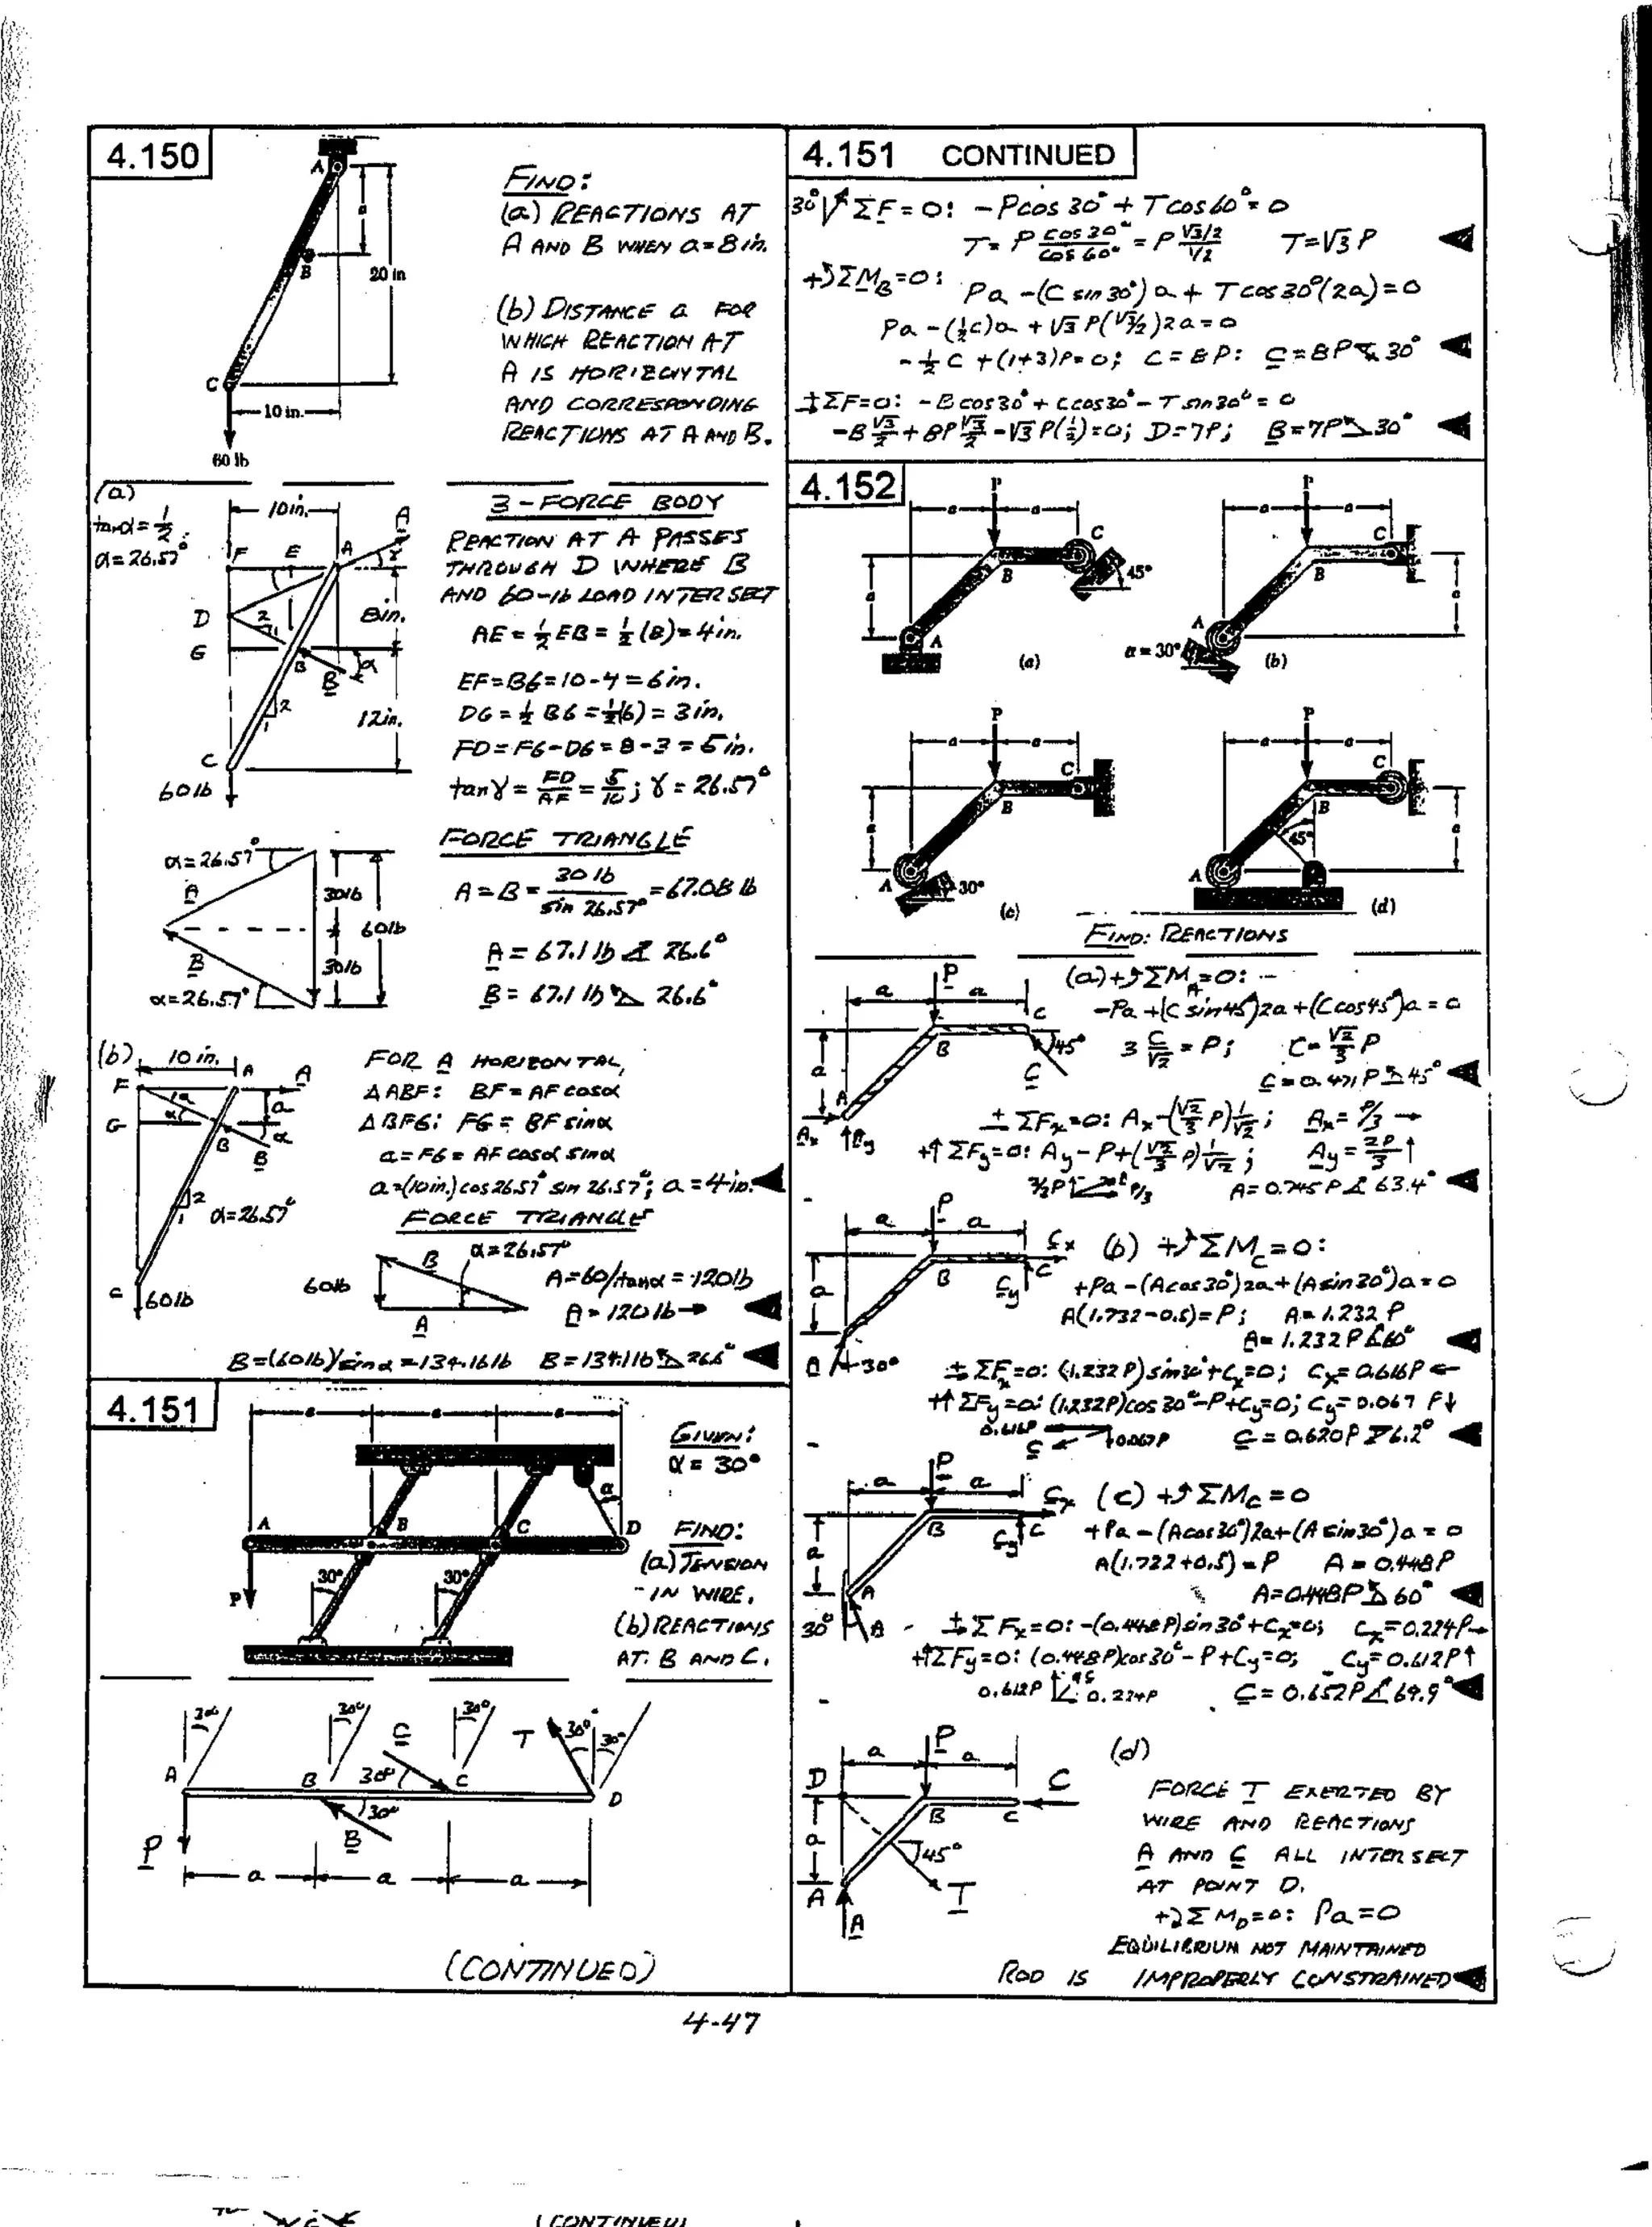 4.150
A
a
B
20 in
C
10 in.
60 lb
FIND:
(a) REACTIONS AT
A AND B WHEN a=8 in.
(b) DISTANCE a FOR
WHICH REACTION AT
A IS HORIZONTAL
AND CORRESPONDING
REACTIONS AT A AND B.
(a)
tanα = 1/2
α=26.57°
10 in.
F E A A γ
D 2 1 8in.
G B B α
2 1 12in.
C
60 lb
3-FORCE BODY
REACTION AT A PASSES
THROUGH D WHERE B
AND 60-lb LOAD INTERSECT
AE = 1/2 EB = 1/2 (8) = 4 in.
EF=BG=10-4=6in.
DG = 1/2 BG = 1/2(6) = 3 in.
FD = FG-DG = 8-3 = 5 in.
tan γ = FD/AF = 5/10 ; γ = 26.57°
FORCE TRIANGLE
α=26.57°
A
30lb
60lb
B
30lb
α=26.57°
A = B = 30 lb / sin 26.57° = 67.08 lb
A = 67.1 lb ∡ 26.6°
B = 67.1 lb ⦣ 26.6°
(b) 10 in.
F A A
α a
G B B α
2 1 α=26.57°
C 60lb
FOR A HORIZONTAL,
ΔABF: BF = AF cosα
ΔBFG: FG = BF sinα
a = FG = AF cosα sinα
a=(10in.)cos26.57° sin 26.57°; a = 4in.
FORCE TRIANGLE
60lb B α=26.57°
A
A=60/tanα = 120lb
A = 120 lb →
B=(60lb)/sinα = 134.16 lb B = 134.1 lb ⦣ 26.6°
4.151
a a a
α
A B C D
30° 30°
P
GIVEN:
α = 30°
FIND:
(a) TENSION
IN WIRE.
(b) REACTIONS
AT B AND C.
30° 30° C 30° T 30° 30°
A B 30° C D
30°
P B
a a a
(CONTINUED)
4.151 CONTINUED
30° ΣF = 0: -Pcos 30° + Tcos60° = 0
T = P cos 30°/cos 60° = P √3/2 / 1/2 T=√3 P
+↺ΣM_B=0: Pa -(C sin 30°) a + T cos 30°(2a)=0
Pa -(½C)a + √3 P(√3/2)2a = 0
-½C +(1+3)P=0; C = 8P: C = 8P ⦣ 30°
ΣF=0: -Bcos30° + Ccos30° - T sin30° = 0
-B √3/2 + 8P √3/2 - √3 P(½)=0; D=7P; B=7P ⦣ 30°
4.152
P a a C
a B 45°
A
(a)
P a a C
B a
A
α = 30°
(b)
P a a C
a B
A 30°
(c)
P a a C
B a
45°
A
(d)
FIND: REACTIONS
P a a C
a B 45°
A C
Ax Ay
(a)+↺ΣM_A=0:
-Pa +(C sin45°)2a +(C cos45°)a = 0
3 C/√2 = P; C = √2/3 P
C = 0.471 P ⦣ 45°
ΣFx=0: Ax-(√2/3 P)1/√2; Ax= P/3 →
+↑ΣFy=0: Ay-P+(√2/3 P)1/√2; Ay = 2P/3 ↑
⅔P P/3 A = 0.745 P ∡ 63.4°
P a a Cx
a B Cy C
A 30°
(b) +↺ΣM_C=0:
+Pa-(Acos30°)2a+(Asin30°)a=0
A(1.732-0.5)=P; A= 1.232 P
A= 1.232P ∡60°
ΣFx=0: (1.232 P)sin30°+Cx=0; Cx= 0.616P ←
+↑ΣFy=0: (1.232P)cos 30°-P+Cy=0; Cy= 0.067 P↓
0.616P C 0.067P C = 0.620P 6.2°
P a a Cx
a B Cy C
A
30° A
(c) +↺ΣM_C=0
+Pa-(Acos30°)2a+(Asin30°)a = 0
A(1.732+0.5)=P A = 0.448P
A=0.448P ⦣ 60°
ΣFx=0: -(0.448P)sin30°+Cx=0; Cx=0.224P→
+↑ΣFy=0: (0.448P)cos30°-P+Cy=0; Cy=0.612P↑
0.612P C 0.224P C = 0.652P ∡69.9°
P a a
D C
a B C
45°
A T
A
(d)
FORCE T EXERTED BY
WIRE AND REACTIONS
A AND C ALL INTERSECT
AT POINT D.
+↺ΣM_D=0: Pa=0
EQUILIBRIUM NOT MAINTAINED
ROD IS IMPROPERLY CONSTRAINED
4-47
(CONTINUED)